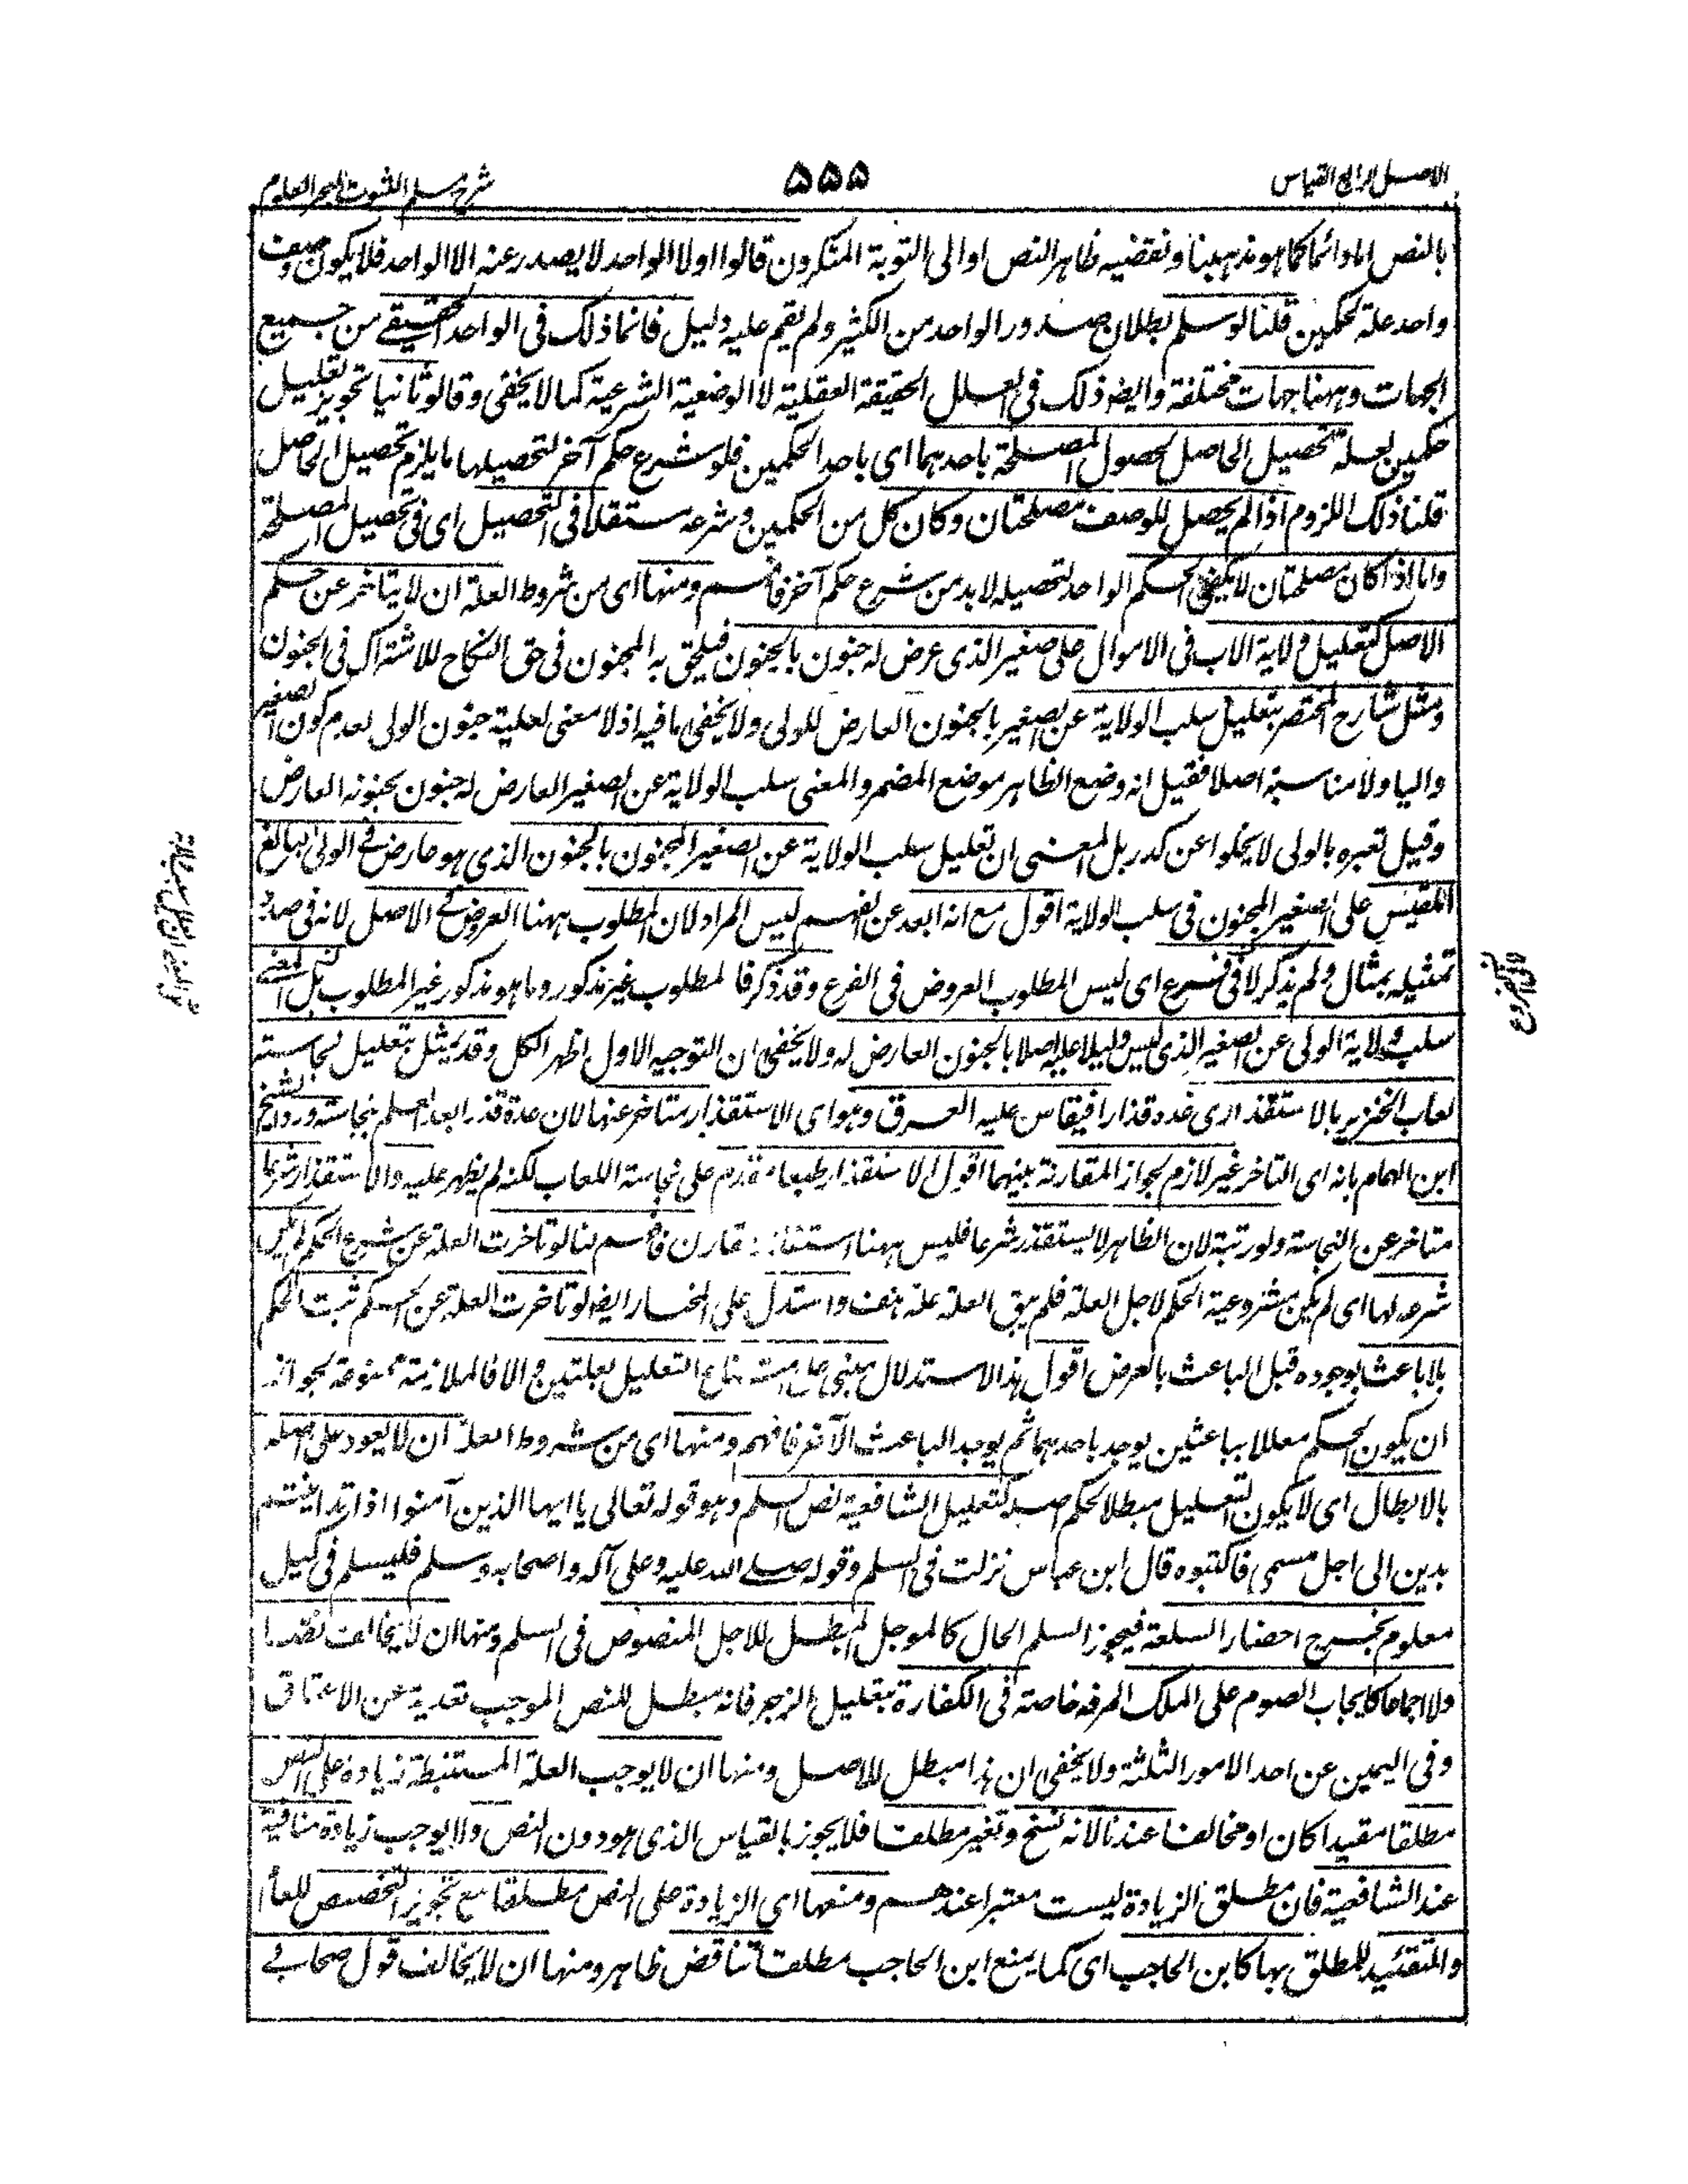 الاصل الرابع القياس
۵۵۵
شرح مسلم الثبوت لبحر العلوم
بالنص اما دائما كما هو مذهبنا ونقضيه ظاهر النص او الى التوبة المنكرون قالوا اولا الواحد لا يصدر عنه الا الواحد فلا يكون وصف
واحد علة لحكمين قلنا لو سلم بطلان صدور الواحد من الكثير ولم يقم عليه دليل فانما ذلك فى الواحد الحقيقے من جميع
الجهات وههنا جهات مختلفة وايضا ذلك فى العلل الحقيقة العقلية لا الوضعية الشرعية كما لا يخفى وقالو ثانيا تجويز تعليل
حكمين بعلة تحصيل الحاصل لحصول المصلحة باحدهما اى باحد الحكمين فلو شرع حكم آخر لتحصيلها يلزم تحصيل الحاصل
قلنا ذلك اللزوم اذا لم يحصل للوصف مصلحتان وكان كل من الحكمين وشرعه مستقلا فى التحصيل اى فى تحصيل المصلحة
واما اذا كان مصلحتان لا يكفى الحكم الواحد لتحصيله لابد من شرع حكم آخر فافهم ومنها اى من شروط العلة ان لا يتاخر عن حكم
الاصل كتعليل ولاية الاب فى الاموال على صغير الذى عرض له جنون بالجنون فيلحق به المجنون فى حق النكاح للاشتراك فى الجنون
ومثل شارح المختصر بتعليل سلب الولاية عن الصغير بالجنون العارض للولى ولا يخفى ما فيه اذ لا معنى لعلية جنون الولى لعدم كون الصغير
واليا ولا مناسبة اصلا فقيل انه وضع الظاهر موضع المضمر والمعنى سلب الولاية عن الصغير العارض له جنون بجنونه العارض
وقيل تعبره بالولى لا يخلوا عن كدر بل المعنى ان تعليل سلب الولاية عن الصغير المجنون بالجنون الذى هو عارض فے الولى البالغ
المقيس على الصغير المجنون فى سلب الولاية اقول مع انه ابعد عن الفهم ليس المراد لان المطلوب ههنا العروض فے الاصل لانه فى صدد
تمثيله بمثال ولم يذكر لا فى فرع اى ليس المطلوب العروض فى الفرع وقد ذكر فالمطلوب غير مذكور وما هو مذكور غير المطلوب بل المعنے
سلب ولاية الولى عن الصغير الذى ليس وليا عليه اصلا بالجنون العارض له ولا يخفى ان التوجيه الاول اظهر الكل وقد يمثل بتعليل نجاسته
لعاب الخنزير بالاستقذار اى عده قذارا فيقاس عليه العرق وهو اى الاستقذار متاخر عنها لان عدة قذر ابعد العلم بنجاسته ورد الشيخ
ابن الهمام بانه اى التاخر غير لازم لجواز المقارنة بينهما اقول الاستقذار طبعا مقدم على نجاسة اللعاب لكنه لم يظهر عليه والاستقذار شرعا
متاخر عن النجاسة ولو رتبة لان الظاهر لا يستقذر شرعا فليس ههنا استقذار مقارن فافهم لنا لو تاخرت العلة عن شرع الحكم لم يكن
شرعه لها اى لم يكن مشروعية الحكم لاجل العلة فلم يبق العلة علة هف واستدل على المختار ايضا لو تاخرت العلة عن الحكم ثبت الحكم
بلا باعث لوجوده قبل الباعث بالعرض اقول هذا الاستدلال مبنى على امتناع التعليل بعلتين والا فالملازمة ممنوعة لجواز
ان يكون الحكم معللا بباعثين يوجد باحدهما ثم يوجد الباعث الآخر فافهم ومنها اى من شروط العلة ان لا يعود على اصله
بالابطال اى لا يكون التعليل مبطلا لحكم اصله كتعليل الشافعية نص السلم وهو قوله تعالى يا ايها الذين آمنوا اذا تداينتم
بدين الى اجل مسمى فاكتبوه قال ابن عباس نزلت فى السلم وقوله صلے الله عليه وعلى آله واصحابه وسلم فليسلم فى كيل
معلوم بحرج احضار السلعة فيجوز السلم الحال كالموجل المبطل للاجل المنصوص فى السلم ومنها ان لا يخالف نصا
ولا اجماعا كايجاب الصوم على الملك المرفه خاصة فى الكفارة بتعليل الزجر فانه مبطل للنص الموجب تعدية عن الاعتاق
وفى اليمين عن احد الامور الثلثة ولا يخفى ان هذا مبطل للاصل ومنها ان لا يوجب العلة المستنبطة زيادة على النص
مطلقا مقيدا كان او مخالفا عندنا لانه نسخ وتغير مطلقا فلا يجوز بالقياس الذى هو دون النص ولا يوجب زيادة منافية
عند الشافعية فان مطلق الزيادة ليست معتبرا عندهم ومنعها اى الزيادة على النص مطلقا مع تجويز التخصيص للعام
والتقئيد للمطلق بها كابن الحاجب اى كما يمنع ابن الحاجب مطلقا تناقض ظاهر ومنها ان لا يخالف قول صحابے